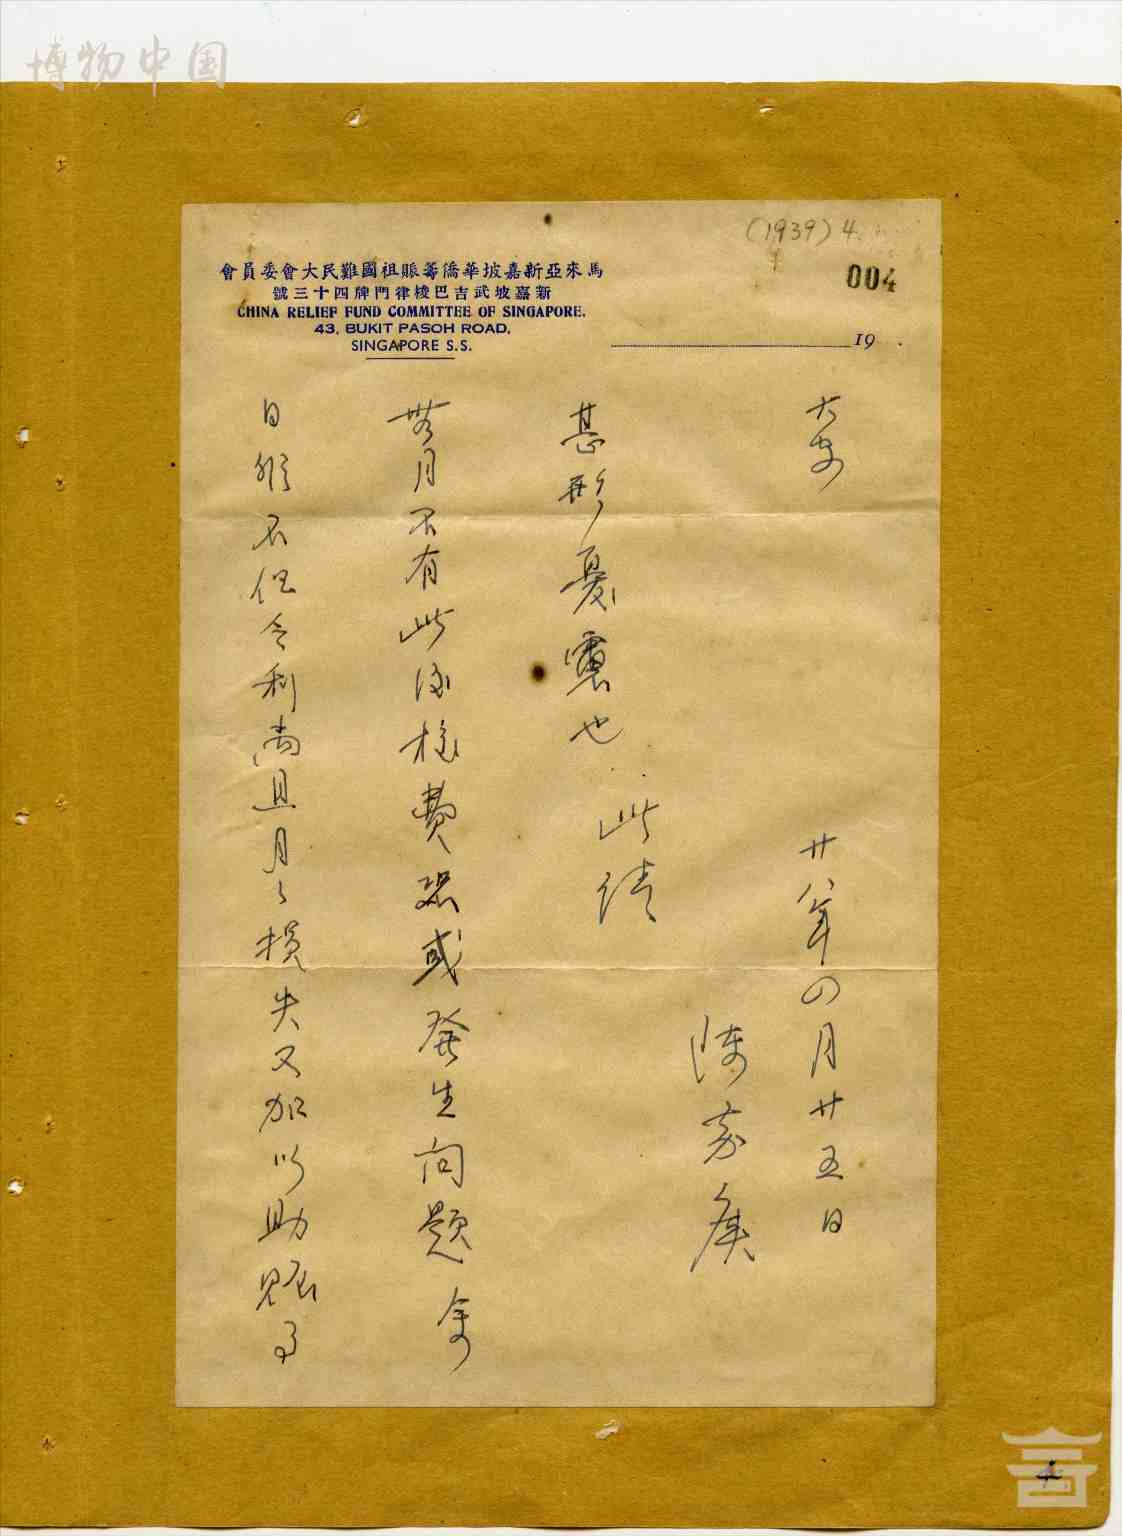 博物中国
(1939) 4.
004
馬來亞新嘉坡華僑籌賑祖國難民大會委員會
新嘉坡武吉巴梭律門牌四十三號
CHINA RELIEF FUND COMMITTEE OF SINGAPORE.
43, BUKIT PASOH ROAD,
SINGAPORE S.S.
19 .
日 不但乏利尚且月々損失又加以助賑
無月不有此後校費恐或發生問題余
甚形憂慮也 此請
大安
陳嘉庚
廿八年四月廿五日